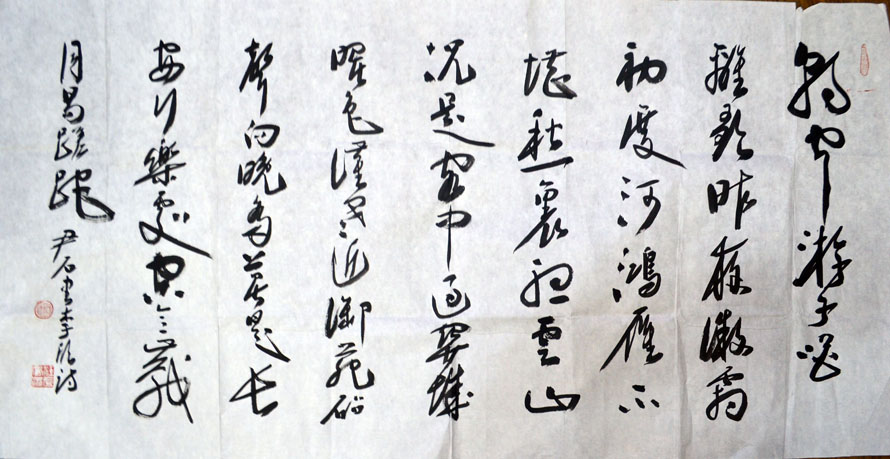 朝聞游子唱
離歌昨夜微霜
初度河鴻雁不
堪愁裏聽雲山
況是客中過關城
曙色催寒近御苑砧
聲向晚多莫是長
安行樂處空令歲
月易蹉跎
尹石書李頎詩